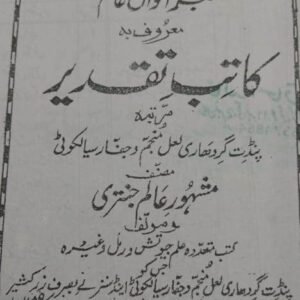 احوال عالم
معروف بہ
کاتبِ تقدیر
مرتبہ
پنڈت گردھاری لعل منجم و جفار سیالکوٹی
مصنف
مشہور عالم جنتری
و مؤلف
کتب متعددہ علم جیوتش و رمل وغیرہ
جس کو
پنڈت گردھاری لعل منجم و جفار سیالکوٹی اینڈ سنز نے بصرف زر کثیر